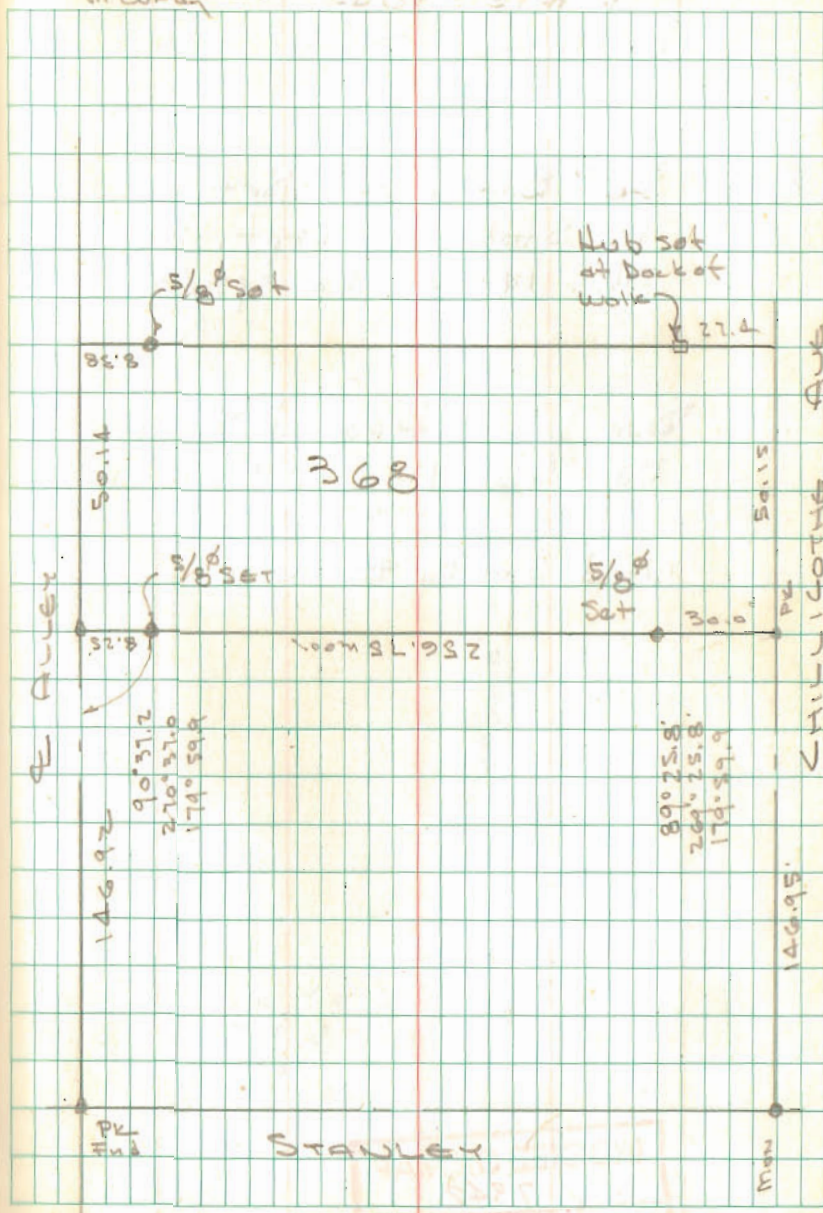 5/8⌀ Set
Hub set
at Back of
walk
22.4
8.38
50.14
368
50.15
CHILLICOTHE AVE
℄ ALLEY
5/8⌀ SET
5/8⌀
Set
30.0
PK
8.25
256.75 meas.
90° 37.2
270° 37.0
179° 59.9
89° 25.8'
269° 25.8'
179° 59.9
146.92
146.95'
PK
Fnd
STANLEY
Mon